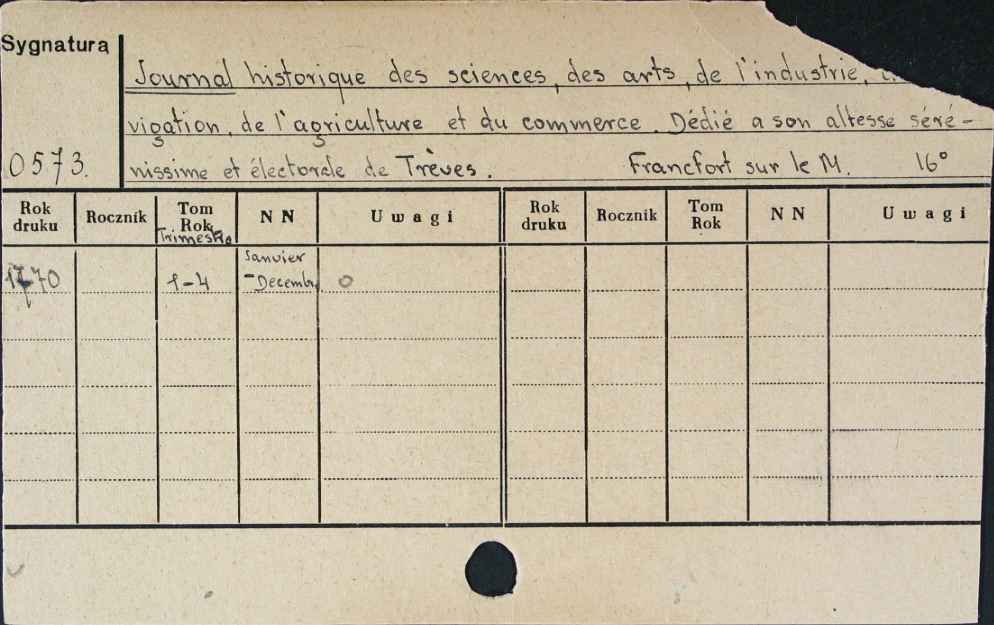 Sygnatura
Journal historique des sciences, des arts, de l'industrie,
vigation, de l'agriculture et du commerce. Dédié a son altesse séré-
0573. nissime et électorale de Trèves. Francfort sur le M. 16°
Rok druku Rocznik Tom Rok Trimestre NN Uwagi Rok druku Rocznik Tom Rok NN Uwagi
Janvier
1770 1-4 -Decembr 0